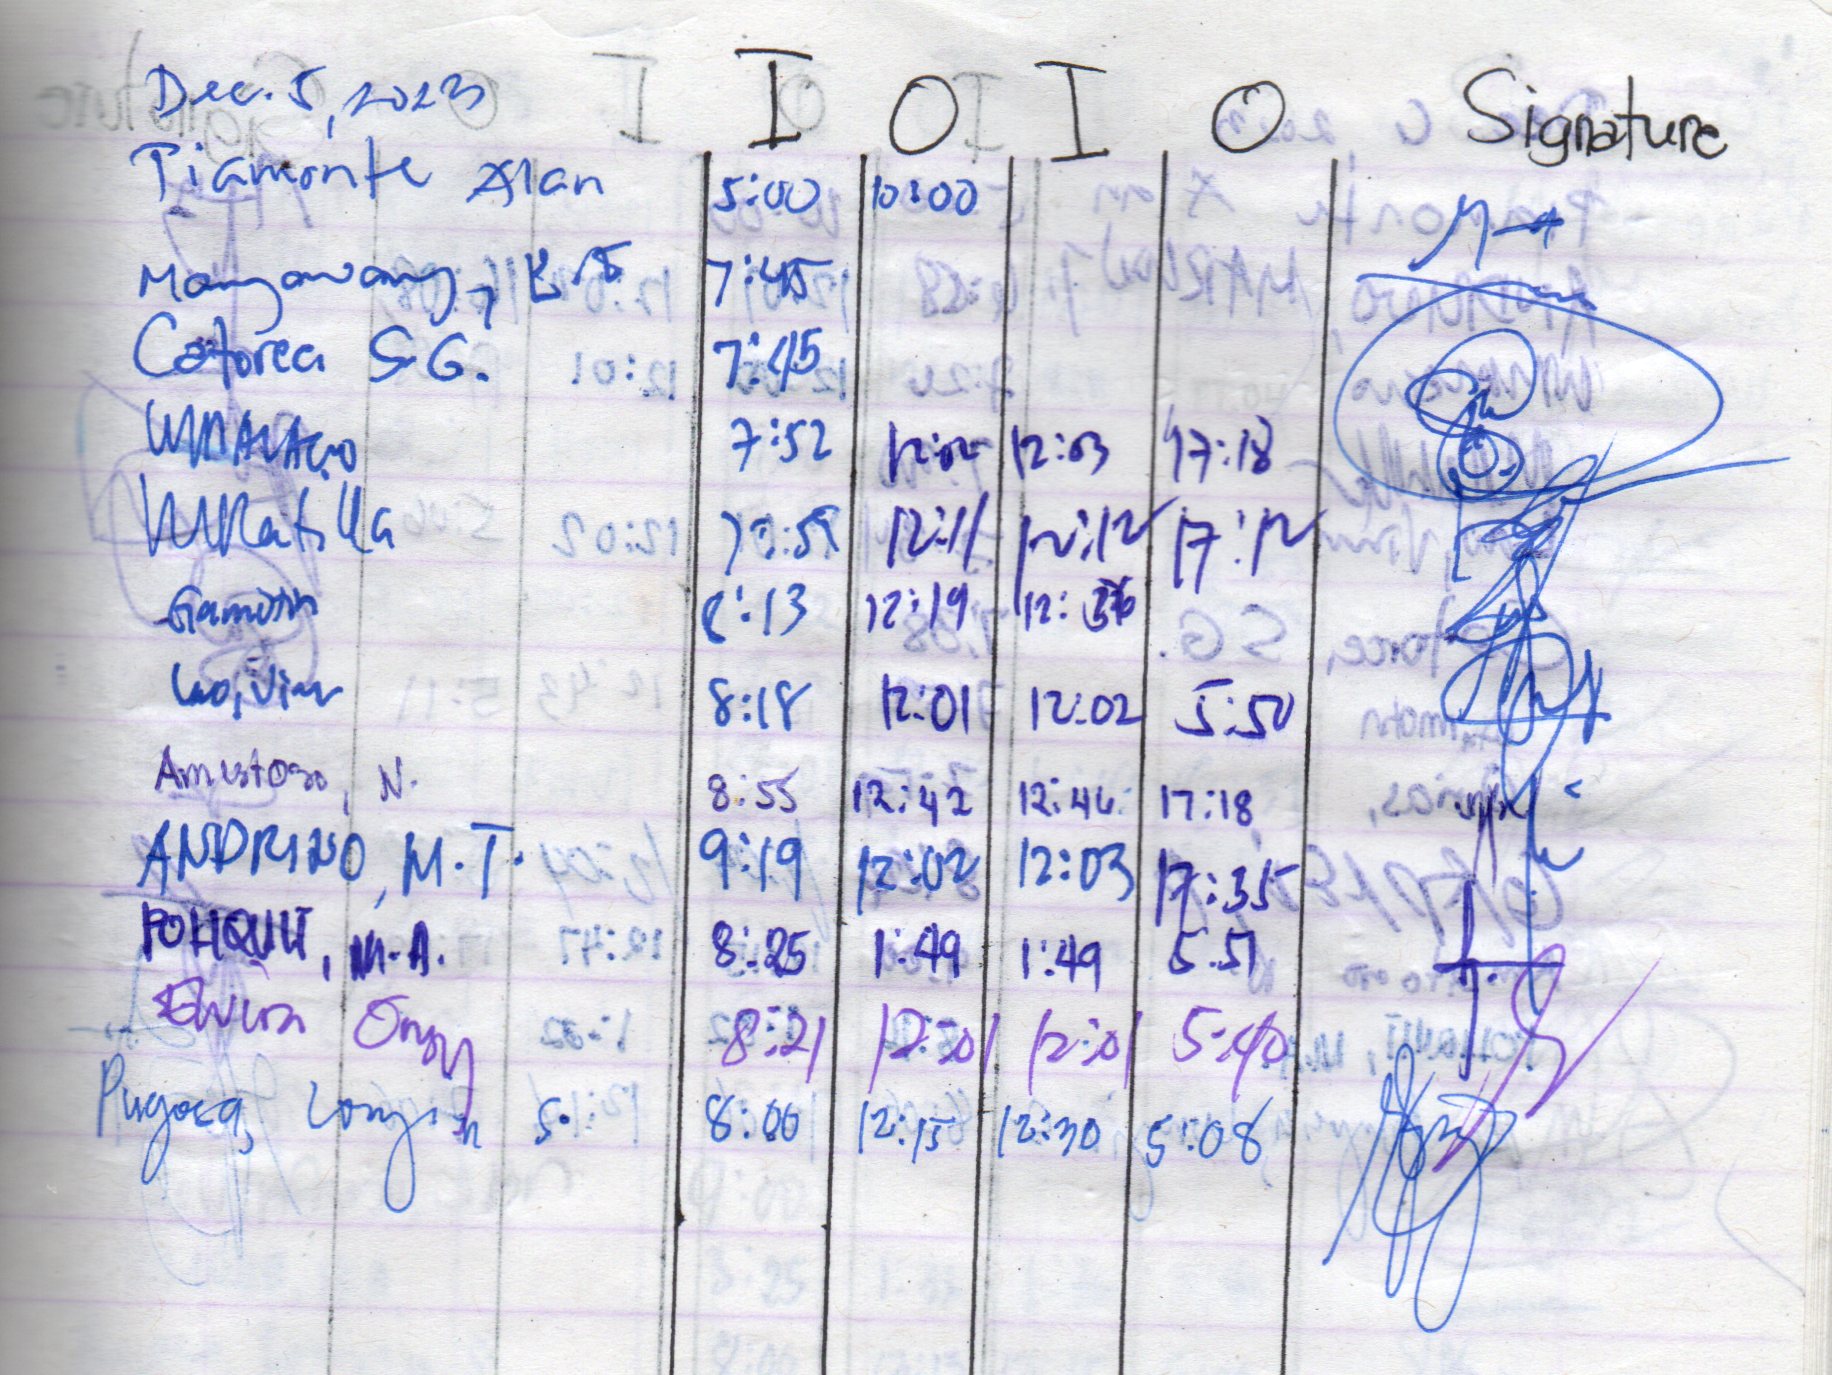 Dec. 5, 2023 I O I O Signature
Piamonte Alan 5:00 10:00
7:45
Catorea S.G. 7:45
7:52 12:02 12:03 17:18
7:59 12:11 12:12 17:12
Gamotin 8:13 12:19 12:36
Lao, Vian 8:18 12:01 12:02 5:50
Amistoso, N. 8:55 12:42 12:46 17:18
ANDRINO, M.T. 9:19 12:02 12:03 17:35
POHQUIT, M.A. 8:25 1:49 1:49 5:51
Erwin 8:21 12:01 12:01 5:40
8:00 12:15 12:30 5:08